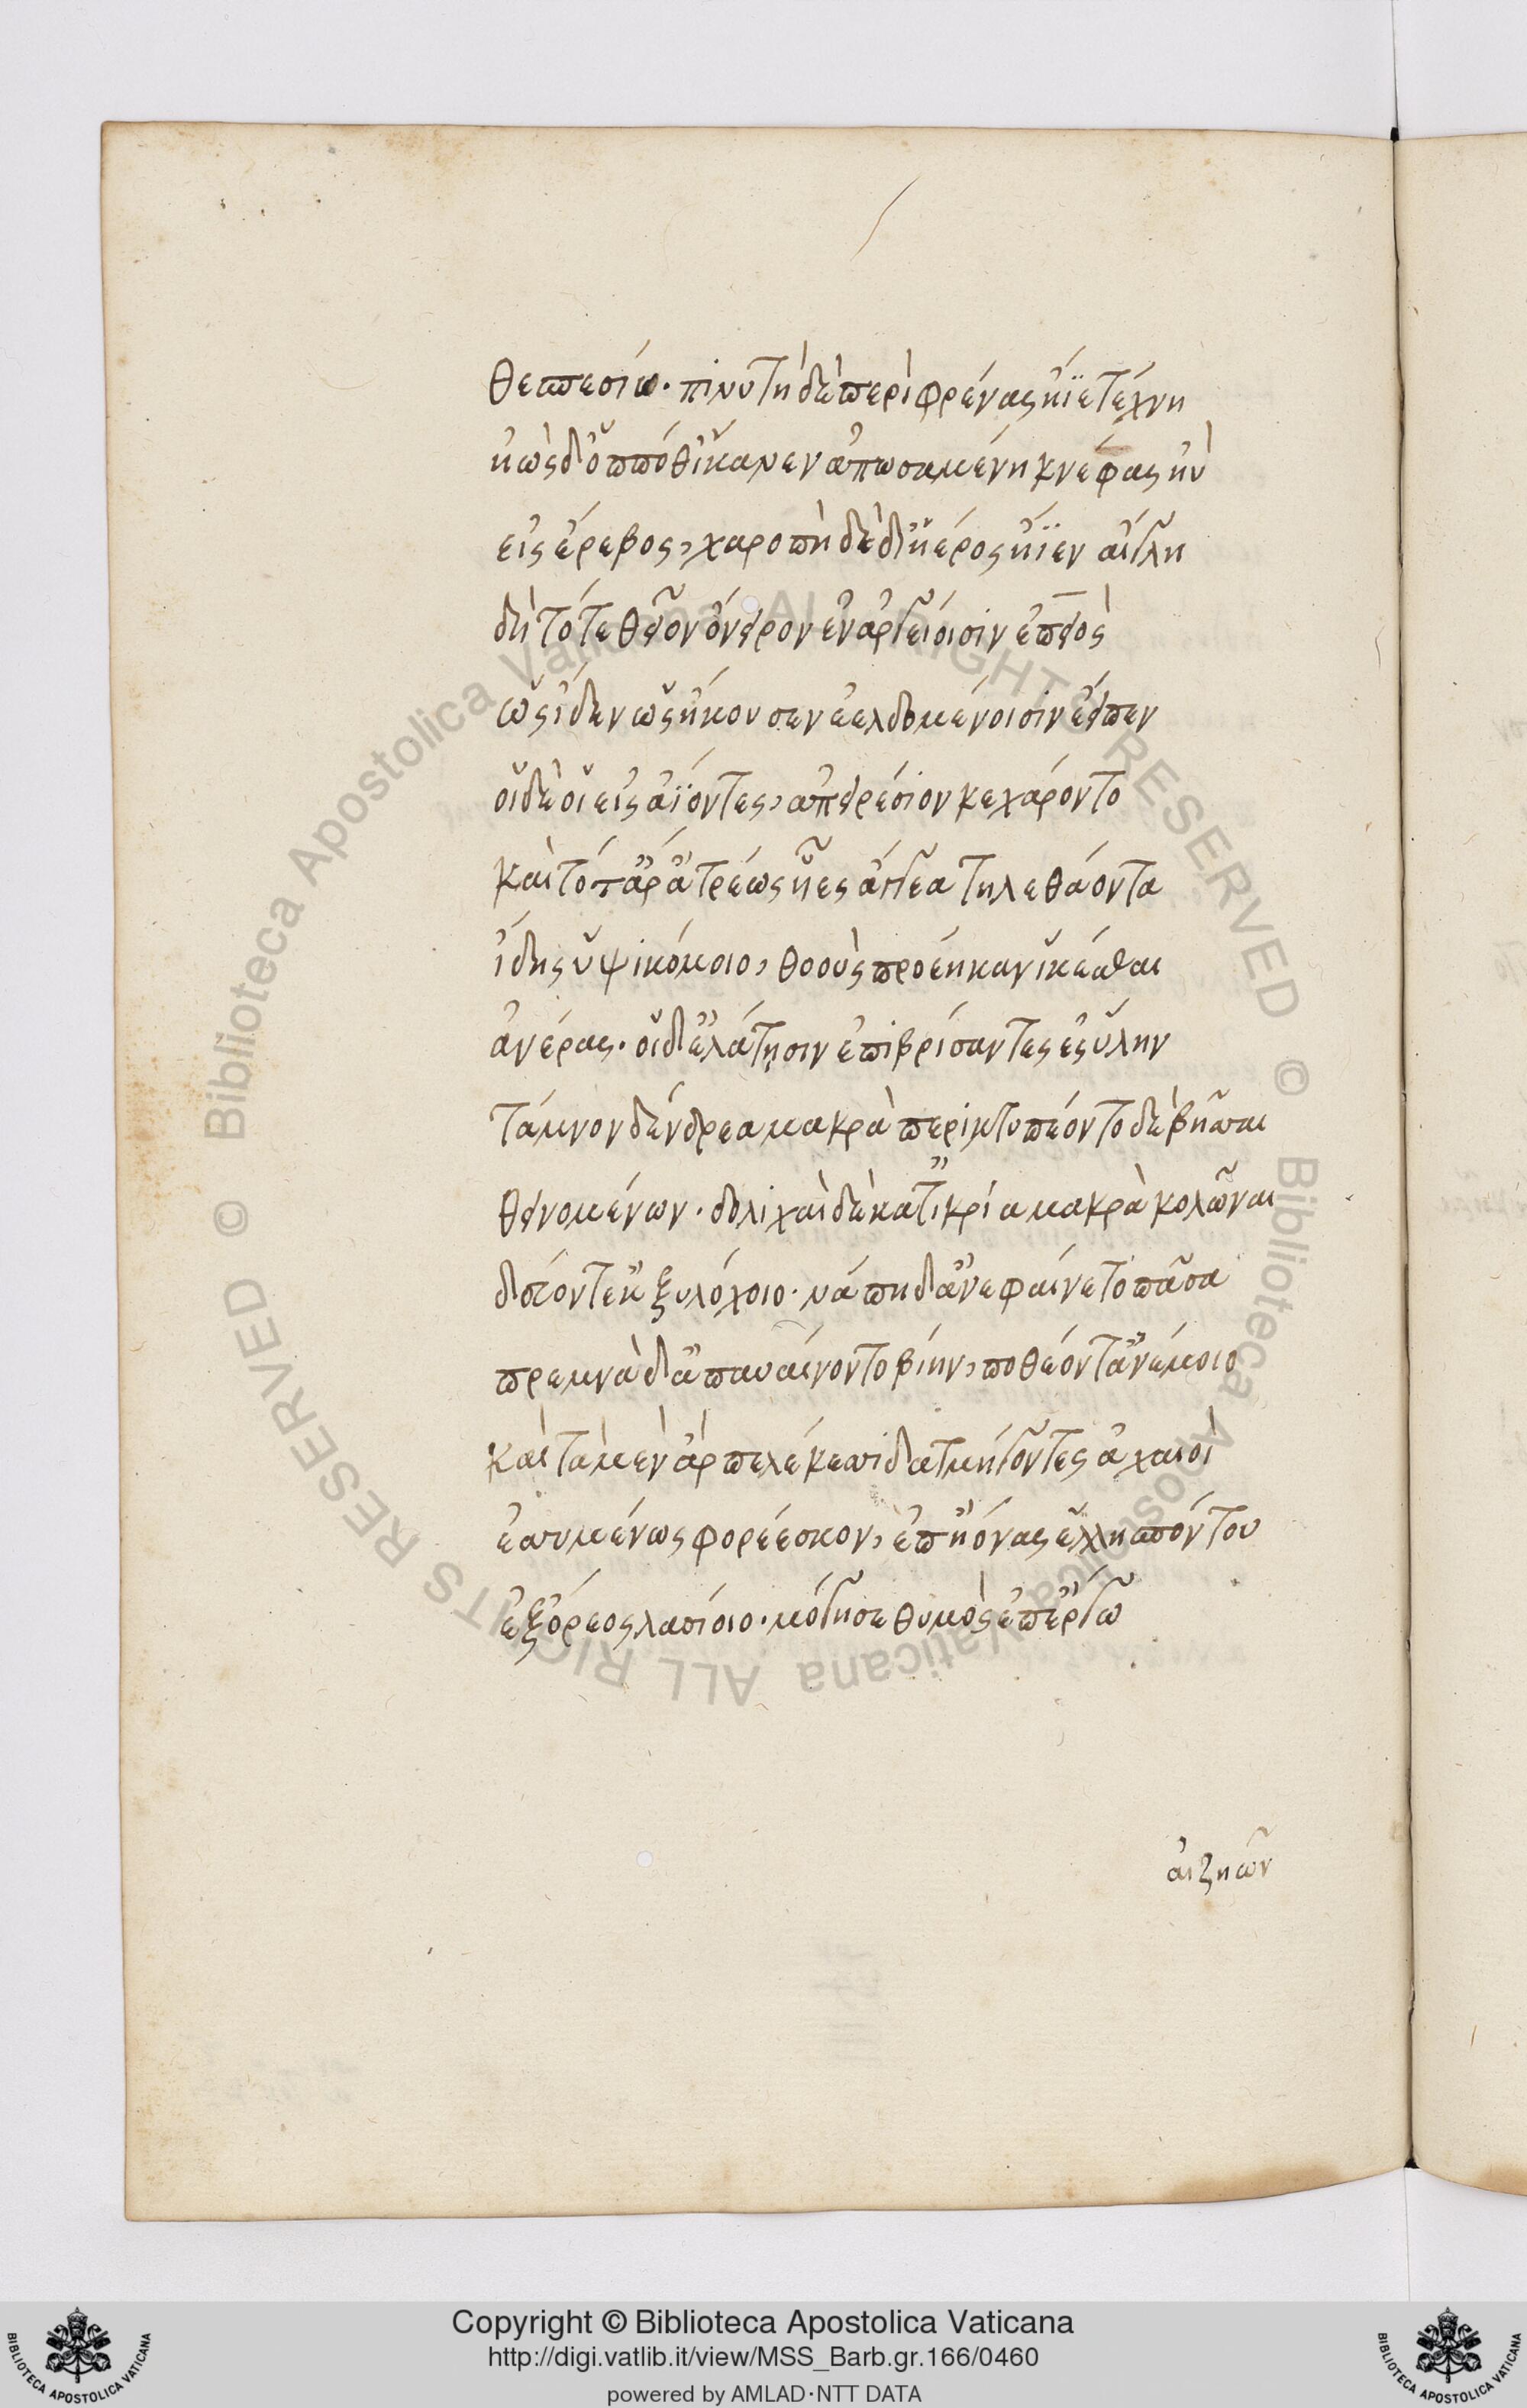 θεσπεσίω. πινυτὴ δὲ περὶ φρένας ἤϊε τέχνη
ἠὼς δ' ὁππόθ' ἵκανεν ἀπωσαμένη κνέφας ἠὺ
εἰς ἔρεβος, χαροπὴ δὲ δι' ἠέρος ἤϊεν αἴγλη
δὴ τότε θεῖον ὄνειρον ἐν ἀργείοισιν ἐπειὸς
ὡς ἴδεν ὡς ἤκουσεν ἐελδομένοισιν ἔειπεν
οἱ δὲ οἱ εἰσαΐοντες, ἀπειρέσιον κεχάροντο
καὶ τότ' ἄρ' ἀτρέως υἷες ἄγκεα τηλεθάοντα
ἴδης ὑψικόμοιο, θοοὺς προέηκαν ἱκέσθαι
ἀνέρας. οἱ δ' ἐλάτῃσιν ἐπιβρίσαντες ἐς ὕλην
τάμνον δένδρεα μακρὰ περικτυπέοντο δὲ βῆσσαι
θεινομένων. δολιχαὶ δὲ κατ' ἴκρία μακρὰ κολῶναι
δεύοντ' ἐκ ξυλόχοιο. νάπη δ' ἀνεφαίνετο πᾶσα
πρεμνὰ δ' ἀπαυαίνοντο βίην, ποθέοντ' ἀνέμοιο
καὶ τὰ μὲν ἂρ πελέκεσσι διατμήγοντες ἀχαιοὶ
ἐσσυμένως φορέεσκον, ἐπ' ἠόνας ἑλλησπόντου
ἐξ ὄρεος λασίοιο. μόγησε θυμὸς ἐπ' ἔργω
αἰζηῶν
Copyright © Biblioteca Apostolica Vaticana
http://digi.vatlib.it/view/MSS_Barb.gr.166/0460
powered by AMLAD·NTT DATA